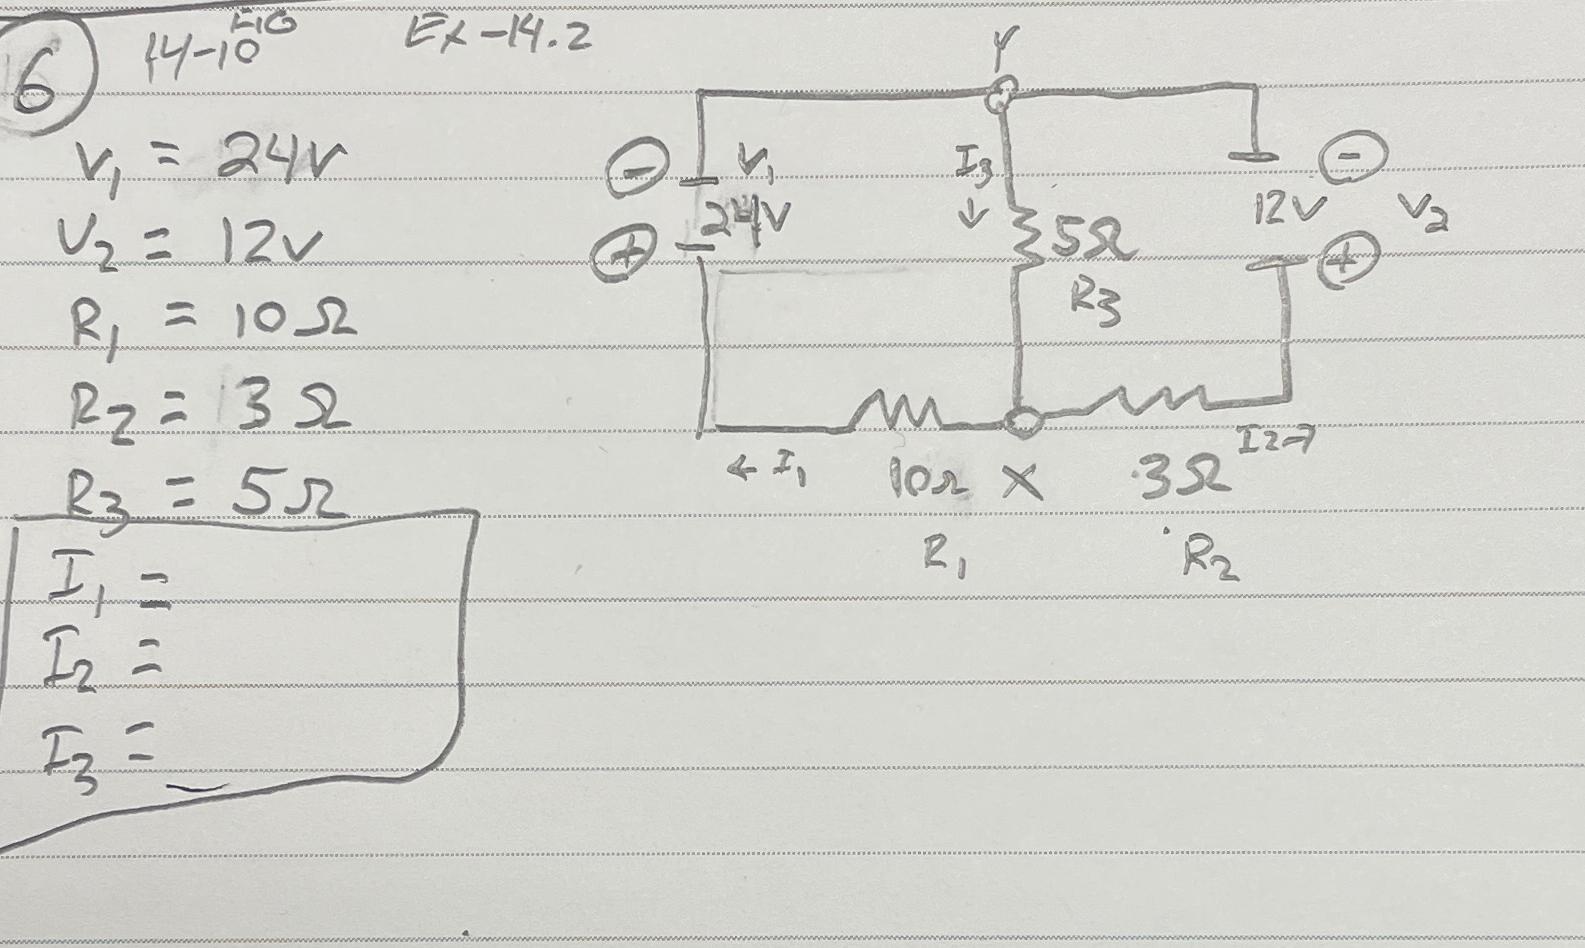 6 FIG 14-10 Ex-14.2
V1 = 24V
V2 = 12V
R1 = 10Ω
R2 = 3Ω
R3 = 5Ω
I1 =
I2 =
I3 =
Y
- V1 I3 -
24V ↓ 5Ω 12V V2
+ R3 +
← I1 10Ω X 3Ω I2→
R1 R2